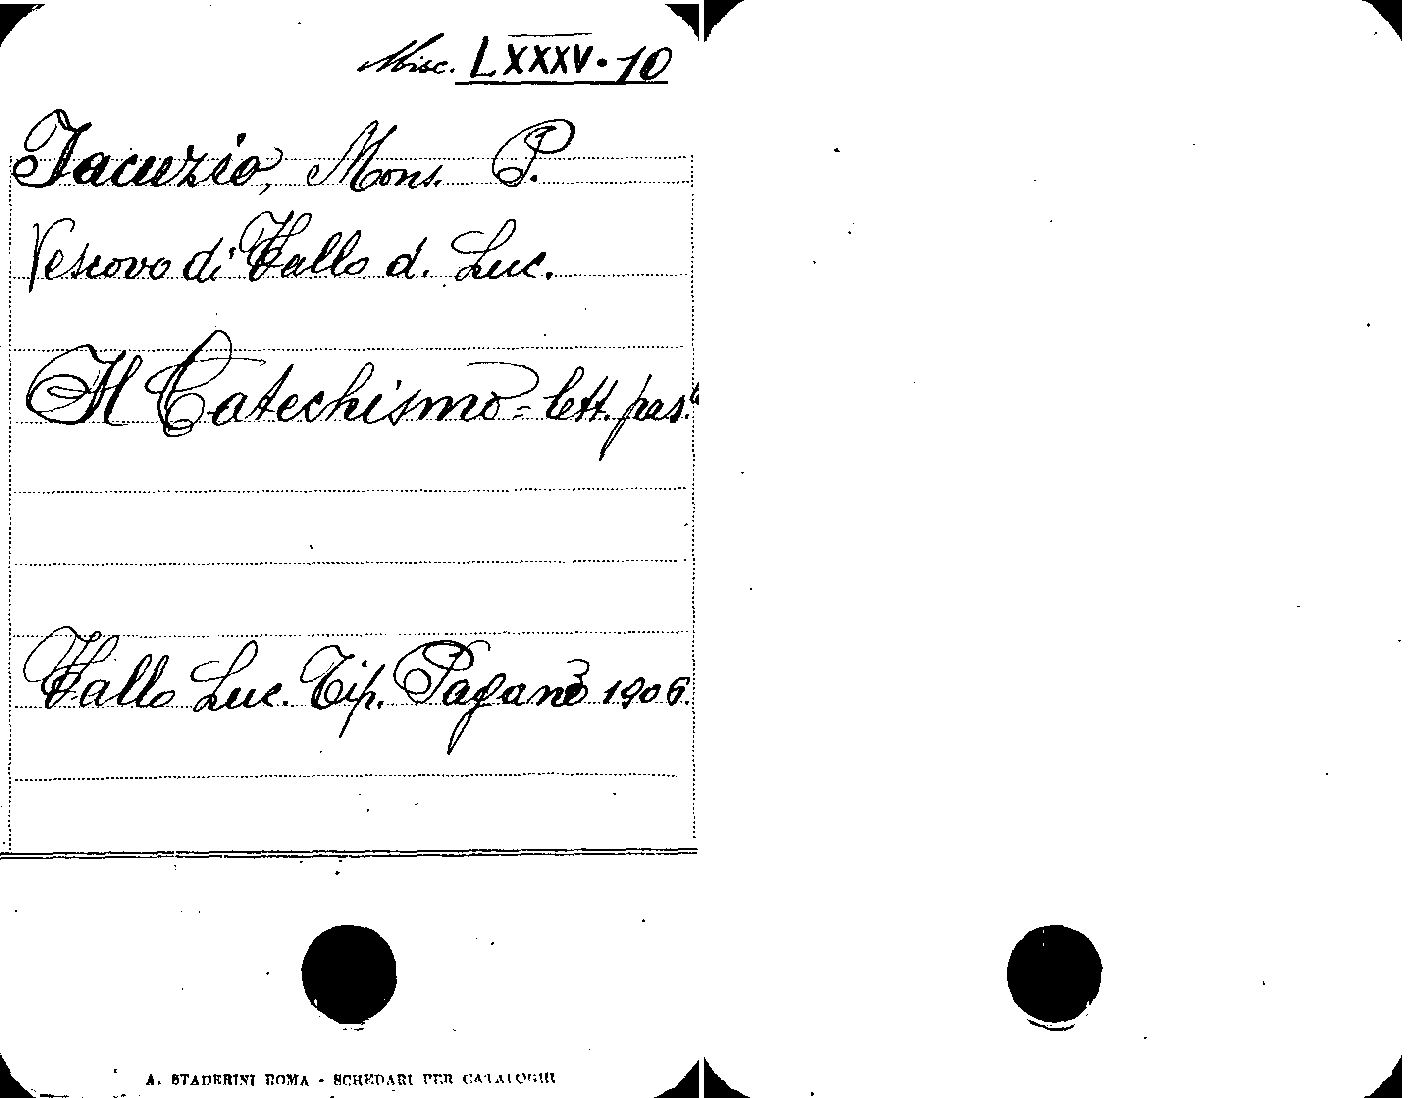 Misc. LXXXV. 10
Jacuzio, Mons. P.
Vescovo di Vallo d. Luc.
Il Catechismo = lett. past.
Vallo Luc. Tip. Pagano 1906.
A. STADERINI ROMA - SCHEDARI PER CATALOGHI